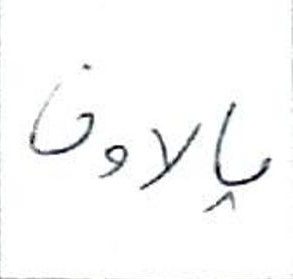 پالاون